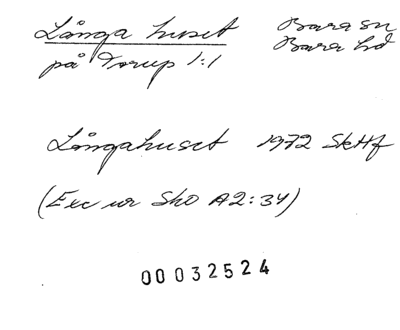 Långa huset Bara sn
på Torup 1:1 Bara hd
Långahuset 1972 SkHf
(Exc ur SkO A2:34)
00032524